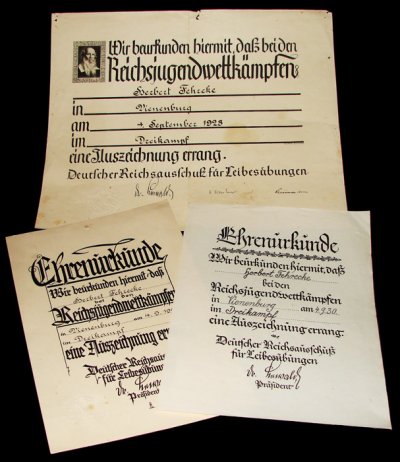 Wir beurkunden hiermit, daß bei den
Reichsjugendwettkämpfen
Herbert Fehrecke
in Vienenburg
am 4. September 1928
im Dreikampf
eine Auszeichnung errang.
Deutscher Reichsausschuß für Leibesübungen
Dr.
Ehrenurkunde
Wir beurkunden hiermit, daß
Herbert Fehrecke
bei den
Reichsjugendwettkämpfen
in Vienenburg am
im Dreikampf
eine Auszeichnung errang
Deutscher Reichsausschuß
für Leibesübungen
Dr.
Präsident
Ehrenurkunde
Wir beurkunden hiermit, daß
Herbert Fehrecke
bei den
Reichsjugendwettkämpfen
in Vienenburg am 4.9.30.
im Dreikampf
eine Auszeichnung errang.
Deutscher Reichsausschuß
für Leibesübungen
Dr.
Präsident